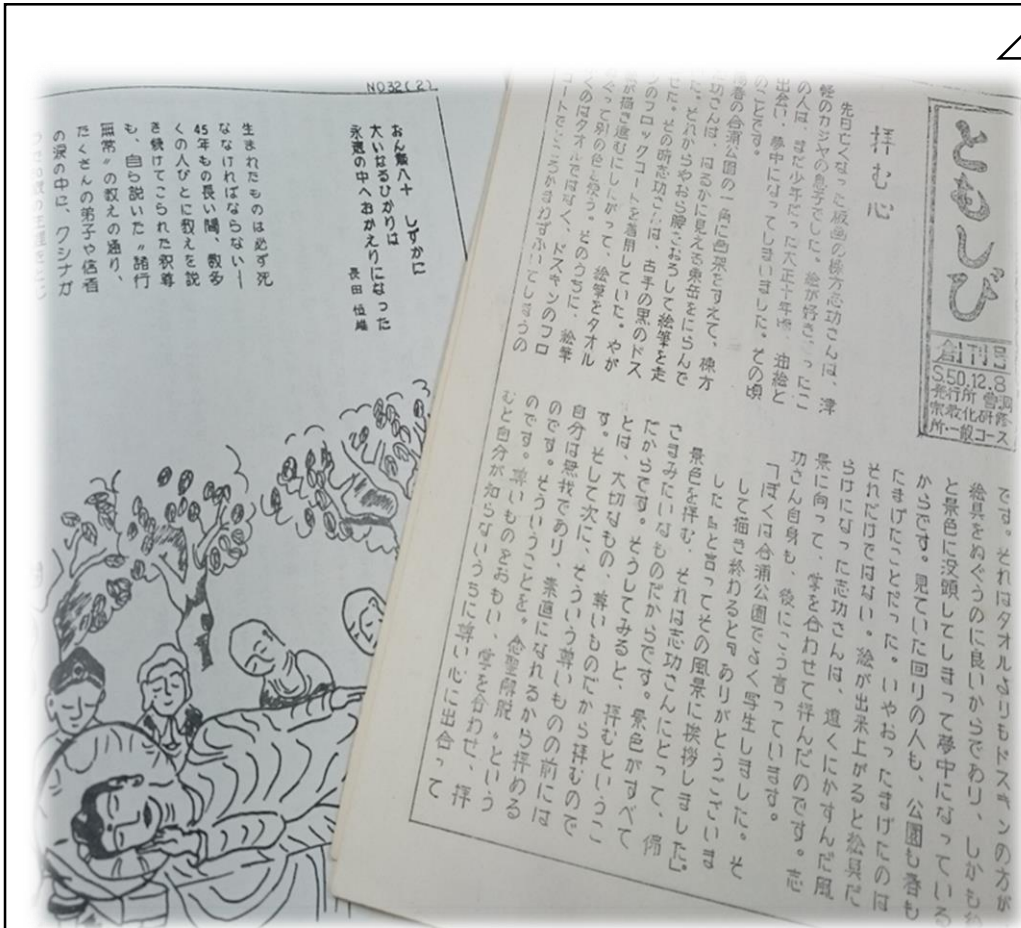 ともしび
創刊号
S.50.12.8
発行所 曹洞
宗教化研修
所・一般コース
拝む心
先日亡くなった版画の棟方志功さんは、津
軽のカジヤの息子でした。絵が好き、ったこ
の人は、まだ少年だった大正十年頃、油絵と
出会い、夢中になってしまいました。その頃
のことです。
春の合浦公園の一角に画架をすえて、棟方
功さんは、はるかに見える東岳をにらんで
た。それからやおら腰をおろして絵筆を走
せた。その時志功さんは、古手の黒のドス
のフロックコートを着用していた。やが
が描き進むにしたがって、絵筆をタオル
ぐって別の色を使う。そのうちに、絵筆
くのはタオルではなく、ドスキンのフロ
コートところかまわずふいてしまうの
です。それはタオルよりもドスキンの方が
絵具をぬぐうのに良いからであり、しかも
と景色に没頭してしまって夢中になっている
からです。見ていた回りの人も、公園も春も
たまげたことだった。いやおったまげたのは
それだけではない。絵が出来上がると絵具だ
らけになった志功さんは、遠くにかすんだ風
景に向って、掌を合わせて拝んだのです。志
功さん自身も、後にこう言っています。
「ぼくは合浦公園でよく写生しました。そ
して描き終わると『ありがとうございま
した』と言ってその風景に挨拶しました。」
景色を拝む、それは志功さんにとって、佛
さまみたいなものだからです。景色がすべて
だからです。そうしてみると、拝むというこ
とは、大切なもの、尊いものだから拝むので
す。そして次に、そういう尊いものの前には
自分は無我であり、素直になれるから拝める
のです。そういうことを。念聖解脱〟という
のです。尊いものをおもい、掌を合わせ、拝
むと自分が知らないうちに尊い心に出合って
NO32(2)
おん齢八十 しずかに
大いなるひかりは
永遠の中へおかえりになった
長田 恒雄
生まれたものは必ず死
なななければならない―
45年もの長い間、数多
くの人びとに教えを説
き続けてこられた釈尊
も、自ら説いた〝諸行
無常〟の教えの通り、
たくさんの弟子や信者
の涙の中に、クシナガ